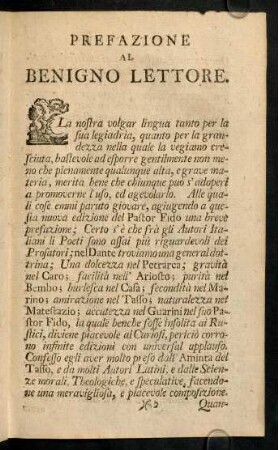 PREFAZIONE
AL
BENIGNO LETTORE.
La nostra volgar lingua tanto per la
sua legiadria, quanto per la gran-
dezza nella quale la vegiamo cre-
sciuta, bastevole ad esporre gentilmente non me-
no che pienamente qualunque alta, e grave ma-
teria, merita bene che chiunque può s'adoperi
a promoverne l'uso, ed agevolarlo. Alle qua-
li cose emmi parúto giovare, agiugendo a que-
sta nuova edizione del Pastor Fido una breve
prefazione; Certo s'è che frà gli Autori Ita-
liani li Poeti sono assai più riguardevoli dei
Prosatori; nel Dante troviamo una general dot-
trina; Una dolcezza nel Petrarca; gravità
nel Caro; facilità nell' Ariosto; purità nel
Bembo; burlesca nel Casa; fecondità nel Ma-
rino; amirazione nel Tasso; naturalezza nel
Matestazio; accutezza nel Guarini nel suo Pa-
stor Fido, la quale benche fosse insolita ai Ru-
stici, diviene piacevole ai Curiosi, perciò corro-
no infinite edizioni con universal applauso.
Confesso egli aver molto preso dall' Aminta del
Tasso, e da molti Autori Latini, e dalle Scien-
ze morali, Theologiche, e speculative, facendo-
ne una meravigliosa, e piacevole composizione.
Quan-